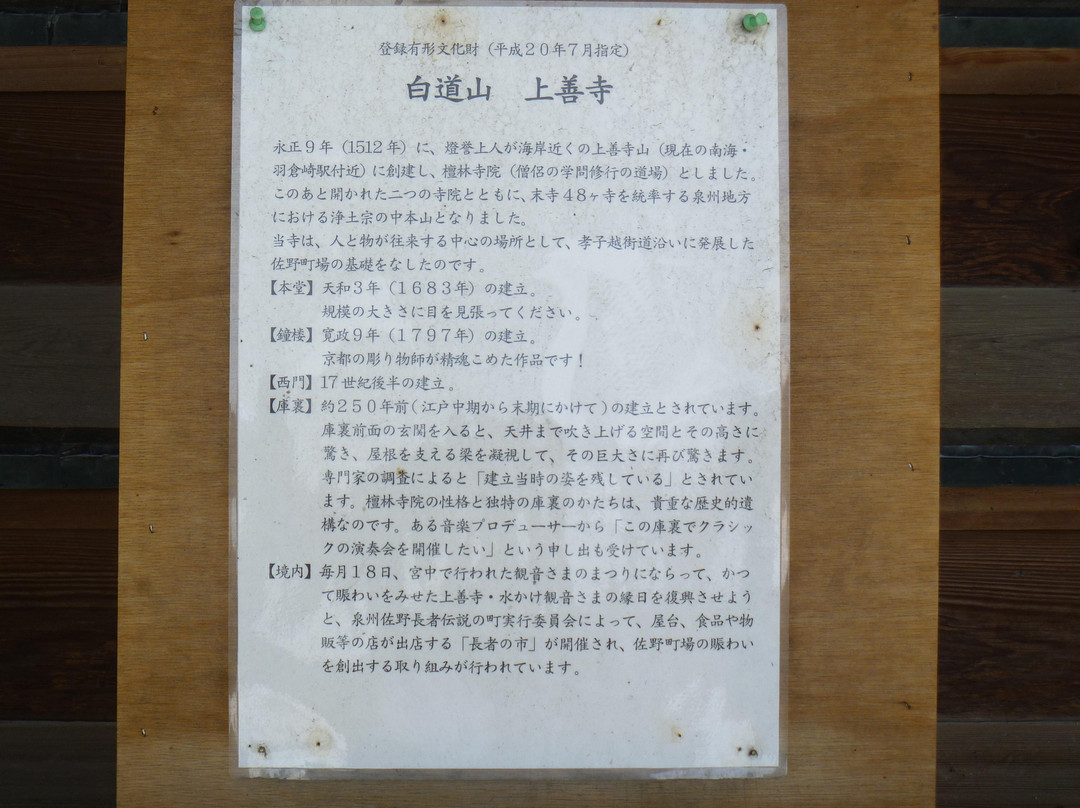 登録有形文化財（平成２０年７月指定）
白道山　上善寺
永正９年（1512年）に、燈誉上人が海岸近くの上善寺山（現在の南海・
羽倉崎駅付近）に創建し、檀林寺院（僧侶の学問修行の道場）としました。
このあと開かれた二つの寺院とともに、末寺４８ヶ寺を統率する泉州地方
における浄土宗の中本山となりました。
当寺は、人と物が往来する中心の場所として、孝子越街道沿いに発展した
佐野町場の基礎をなしたのです。
【本堂】天和３年（１６８３年）の建立。
規模の大きさに目を見張ってください。
【鐘楼】寛政９年（１７９７年）の建立。
京都の彫り物師が精魂こめた作品です！
【西門】17世紀後半の建立。
【庫裏】約２５０年前(江戸中期から末期にかけて)の建立とされています。
庫裏前面の玄関を入ると、天井まで吹き上げる空間とその高さに
驚き、屋根を支える梁を凝視して、その巨大さに再び驚きます。
専門家の調査によると「建立当時の姿を残している」とされてい
ます。檀林寺院の性格と独特の庫裏のかたちは、貴重な歴史的遺
構なのです。ある音楽プロデューサーから「この庫裏でクラシッ
クの演奏会を開催したい」という申し出も受けています。
【境内】毎月１８日、宮中で行われた観音さまのまつりにならって、かつ
て賑わいをみせた上善寺・水かけ観音さまの縁日を復興させよう
と、泉州佐野長者伝説の町実行委員会によって、屋台、食品や物
販等の店が出店する「長者の市」が開催され、佐野町場の賑わい
を創出する取り組みが行われています。